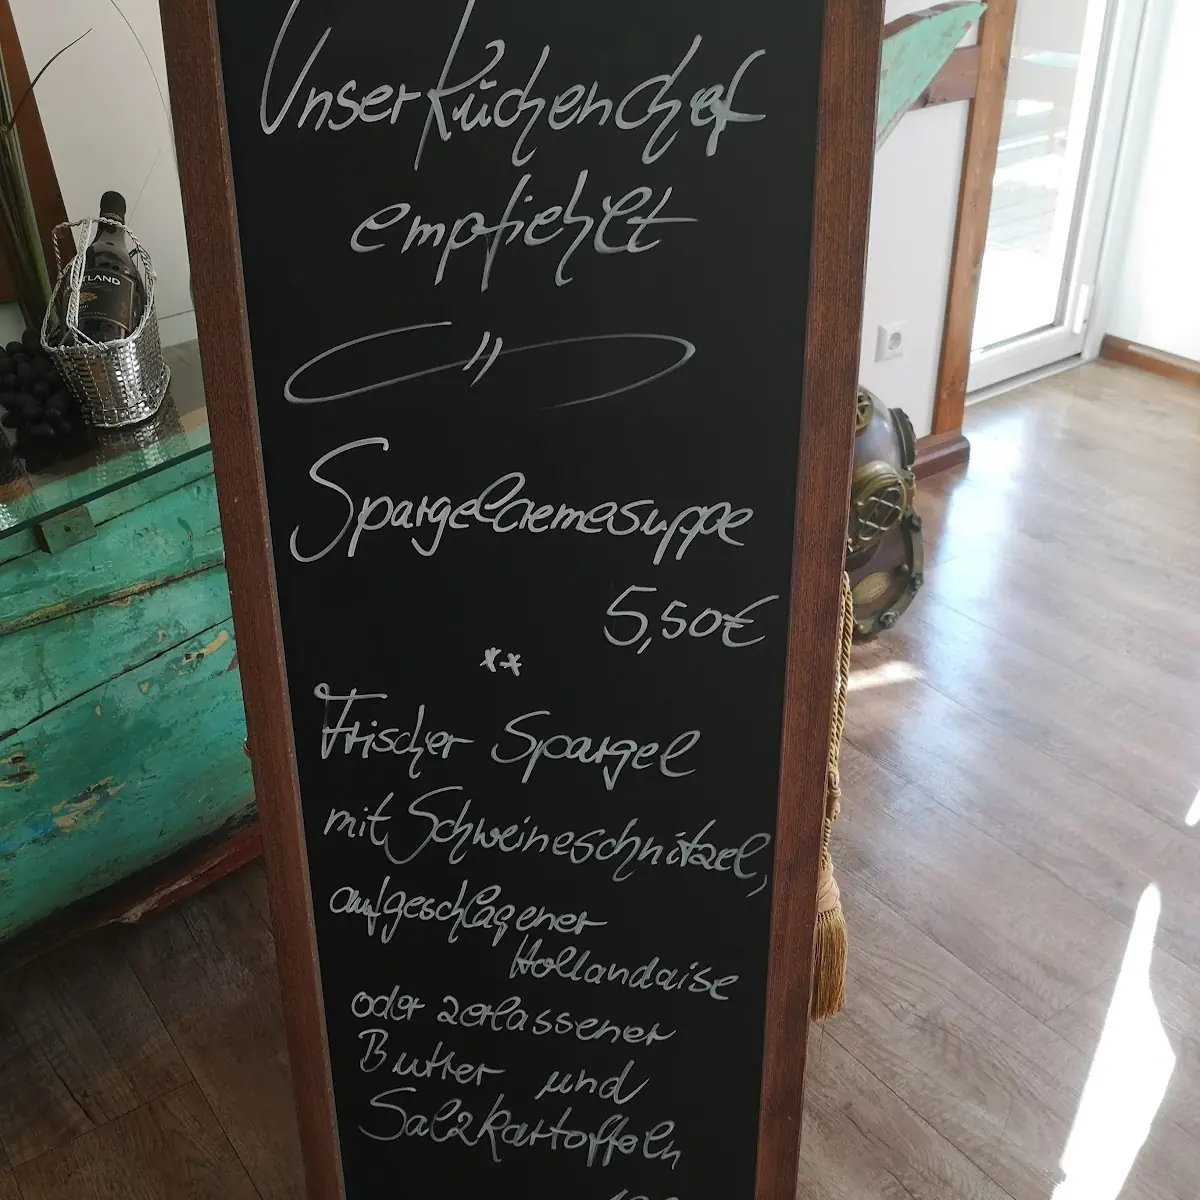 Unser Küchenchef
empfiehlt
Spargelcremesuppe
5,50€
**
Frischer Spargel
mit Schweineschnitzel,
aufgeschlagener
Hollandaise
oder zerlassener
Butter und
Salzkartoffeln
TLAND